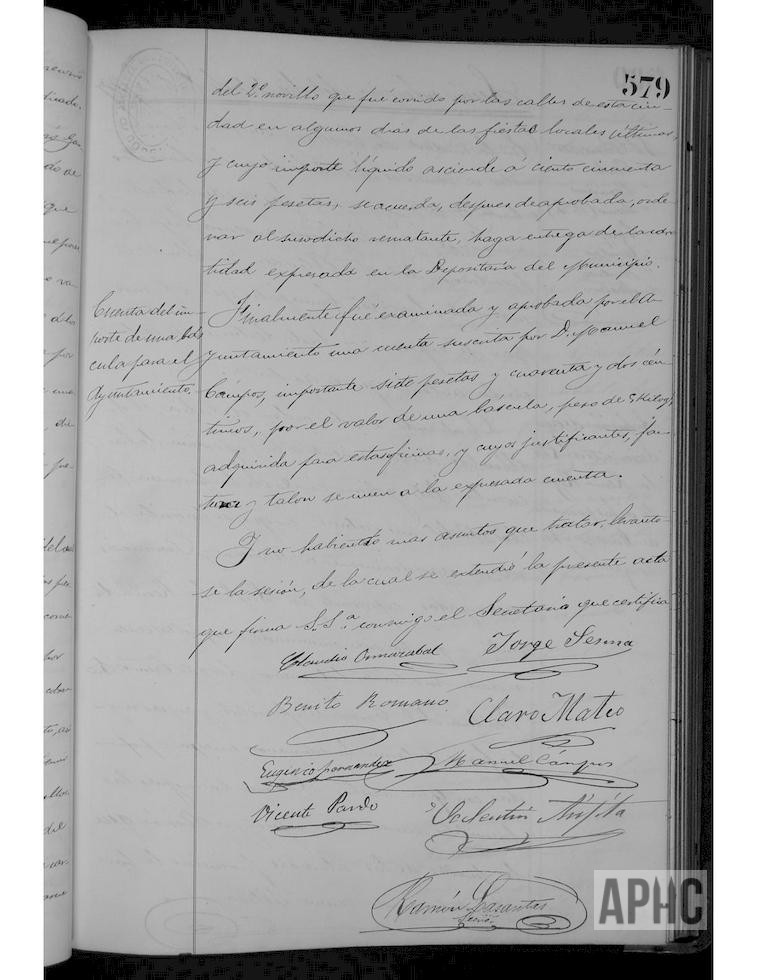 579
del 2º novillo que fué corrido por las calles de esta ciu-
dad en algunos dias de las fiestas locales últimas,
y cuyo importe líquido asciende á ciento cincuenta
y seis pesetas, se acuerda, despues de aprobada, orde-
nar al susodicho rematante, haga entrega de la can-
tidad expresada en la Depositaria del Municipio.
Cuenta del im-
porte de una bás
cula para el
Ayuntamiento.
Finalmente fué examinada y aprobada por el A-
yuntamiento una cuenta suscrita por D. Manuel
Campos, importante siete pesetas y cuarenta y dos cén-
timos, por el valor de una báscula, peso de
adquirida para estas oficinas, y cuyos justificantes, fac-
tura y talon se unen a la expresada cuenta.
Y no habiendo mas asuntos que tratar, levanto-
se la sesión, de la cual se extendió la presente acta
que firma S.Sª conmigo el Secretario que certifica
Claudio Ormazabal Jorge Serma
Benito Romano Claro Mateo
Eugenio Fernandez Manuel Cámpos
Vicente Pardo Valentin
Ramón Lasantas
Secrio
APHC